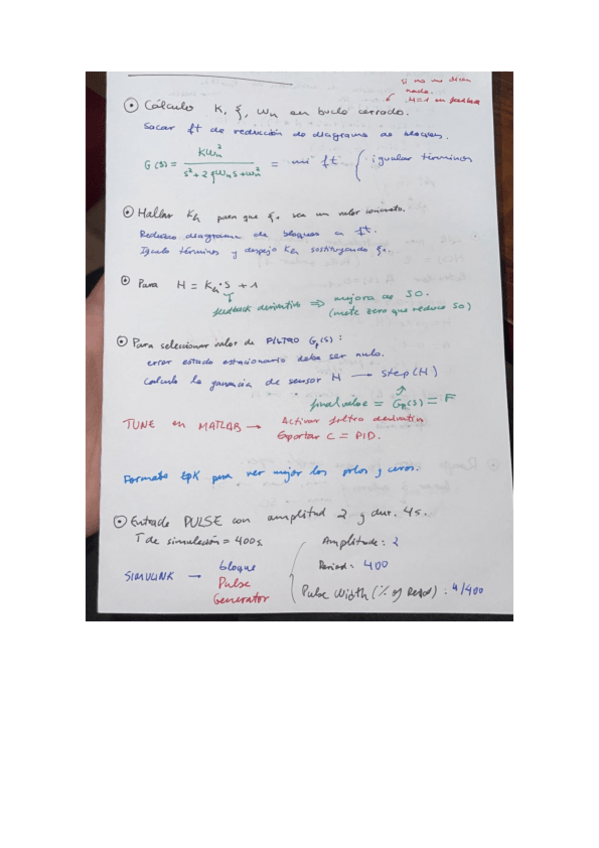 si no me dicen
nada.
H=1 en feedback
⊙ Cálculo K, ξ, ωn en bucle cerrado.
Sacar ft de reducción de diagrama de bloques.
G(s) = Kωn² / s²+2ξωns+ωn² = mi ft { igualar términos
⊙ Hallar Kh para que ξ sea un valor concreto.
Reduzco diagrama de bloques a ft.
Igualo términos y despejo Kh sustituyendo ξ.
⊙ Para H = Kh·s + 1
feedback derivativo ⇒ mejora de SO.
(mete zero que reduce SO)
⊙ Para seleccionar valor de FILTRO Gf(s):
error estado estacionario debe ser nulo.
Calculo la ganancia de sensor H → step(H)
final value = Gf(s) = F
TUNE en MATLAB → Activar filtro derivativo
Exportar C = PID.
Formato zpk para ver mejor los polos y ceros.
⊙ Entrada PULSE con amplitud 2 y dur. 4s.
T de simulación = 400s.
SIMULINK → bloque
Pulse
Generator
Amplitude: 2
Period: 400
Pulse Width (% of Period): 4/400